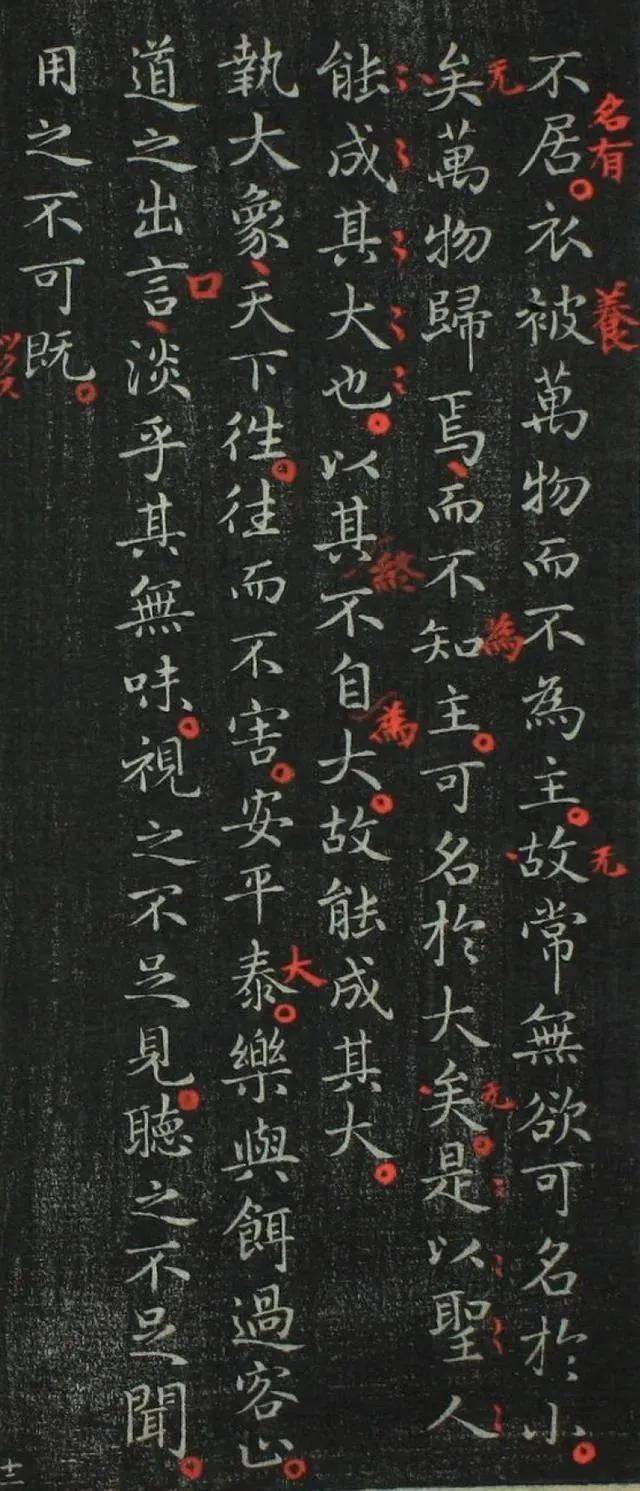 不居衣被萬物而不為主故常無欲可名於小
名有
養
无
矣萬物歸焉而不知主可名於大矣是以聖人
无
為
无
能成其大也以其不自大故能成其大
終
為
執大象天下徃往而不害安平泰樂與餌過客止
大
道之出言淡乎其無味視之不足見聽之不足聞
口
用之不可既
十二